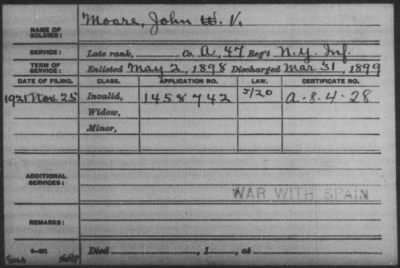 NAME OF SOLDIER: Moore, John W. V.
SERVICE: Late rank, Co. A, 47 Reg't N.Y. Inf.
TERM OF SERVICE: Enlisted May 2, 1898 Discharged Mar 31, 1899
DATE OF FILING. CLASS. APPLICATION NO. LAW. CERTIFICATE NO.
1921 Nov. 25 Invalid, 1458742 5/20 A-8-4-28
Widow,
Minor,
ADDITIONAL SERVICES:
WAR WITH SPAIN
REMARKS:
Died , 1 , at